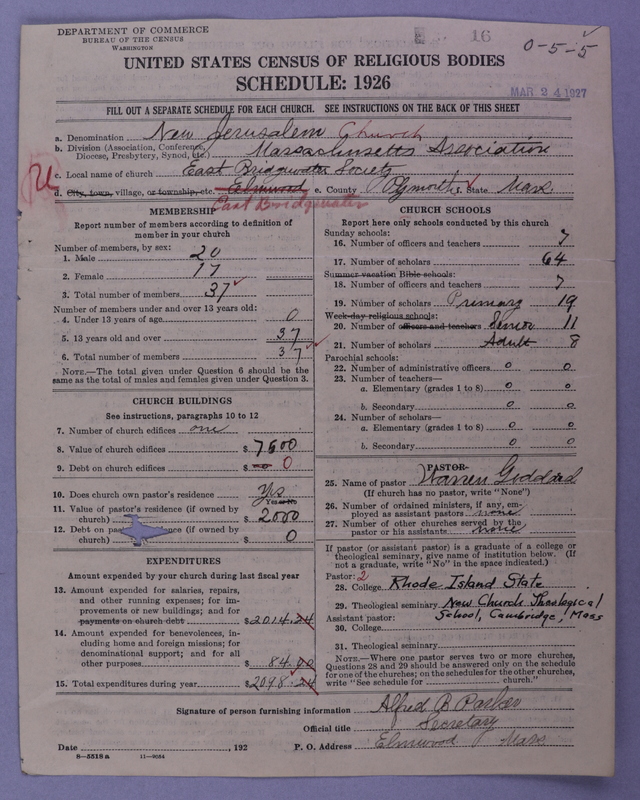 DEPARTMENT OF COMMERCE
BUREAU OF THE CENSUS
WASHINGTON
16
0-5-5
UNITED STATES CENSUS OF RELIGIOUS BODIES
SCHEDULE: 1926
MAR 24 1927
FILL OUT A SEPARATE SCHEDULE FOR EACH CHURCH. SEE INSTRUCTIONS ON THE BACK OF THIS SHEET
a. Denomination New Jerusalem Church
b. Division (Association, Conference, Diocese, Presbytery, Synod, etc.) Massachusetts Association
c. Local name of church East Bridgewater Society
d. City, town, village, or township, etc. Elmwood e. County Plymouth f. State Mass.
East Bridgewater
MEMBERSHIP
Report number of members according to definition of member in your church
Number of members, by sex:
1. Male 20
2. Female 17
3. Total number of members 37
Number of members under and over 13 years old:
4. Under 13 years of age 0
5. 13 years old and over 37
6. Total number of members 37
NOTE.—The total given under Question 6 should be same as the total of males and females given under Question 3.
CHURCH BUILDINGS
See instructions, paragraphs 10 to 12
7. Number of church edifices one
8. Value of church edifices $ 7500
9. Debt on church edifices $ no 0
10. Does church own pastor's residence Yes
Yes or No
11. Value of pastor's residence (if owned by church) $ 2000
12. Debt on (if owned by church) $ 0
EXPENDITURES
Amount expended by your church during last fiscal year
13. Amount expended for salaries, repairs, and other running expenses; for improvements or new buildings; and for payments on church debt $ 2014.24
14. Amount expended for benevolences, including home and foreign missions; for denominational support; and for all other purposes $ 84.00
15. Total expenditures during year $ 2098.24
CHURCH SCHOOLS
Report here only schools conducted by this church
Sunday schools:
16. Number of officers and teachers 7
17. Number of scholars 64
Summer vacation Bible schools:
18. Number of officers and teachers 7
19. Number of scholars Primary 19
Week-day religious schools:
20. Number of officers and teachers Senior 11
21. Number of scholars Adult 8
Parochial schools:
22. Number of administrative officers 0 0
23. Number of teachers—
a. Elementary (grades 1 to 8) 0 0
b. Secondary 0 0
24. Number of scholars—
a. Elementary (grades 1 to 8) 0 0
b. Secondary 0 0
PASTOR
25. Name of pastor Warren Goddard
(If church has no pastor, write "None")
26. Number of ordained ministers, if any, employed as assistant pastors none
27. Number of other churches served by the pastor or his assistants none
If pastor (or assistant pastor) is a graduate of a college or theological seminary, give name of institution below. (If not a graduate, write "No" in the space indicated.)
Pastor: 2
28. College Rhode Island State
29. Theological seminary New Church Theological School, Cambridge, Mass
Assistant pastor:
30. College
31. Theological seminary
NOTE.—Where one pastor serves two or more churches, Questions 28 and 29 should be answered only on the schedule for one of the churches; on the schedules for the other churches, write "See schedule for church."
Signature of person furnishing information Alfred B Parker
Official title Secretary
Date , 192 P. O. Address Elmwood Mass
8—5518 a 11—9054